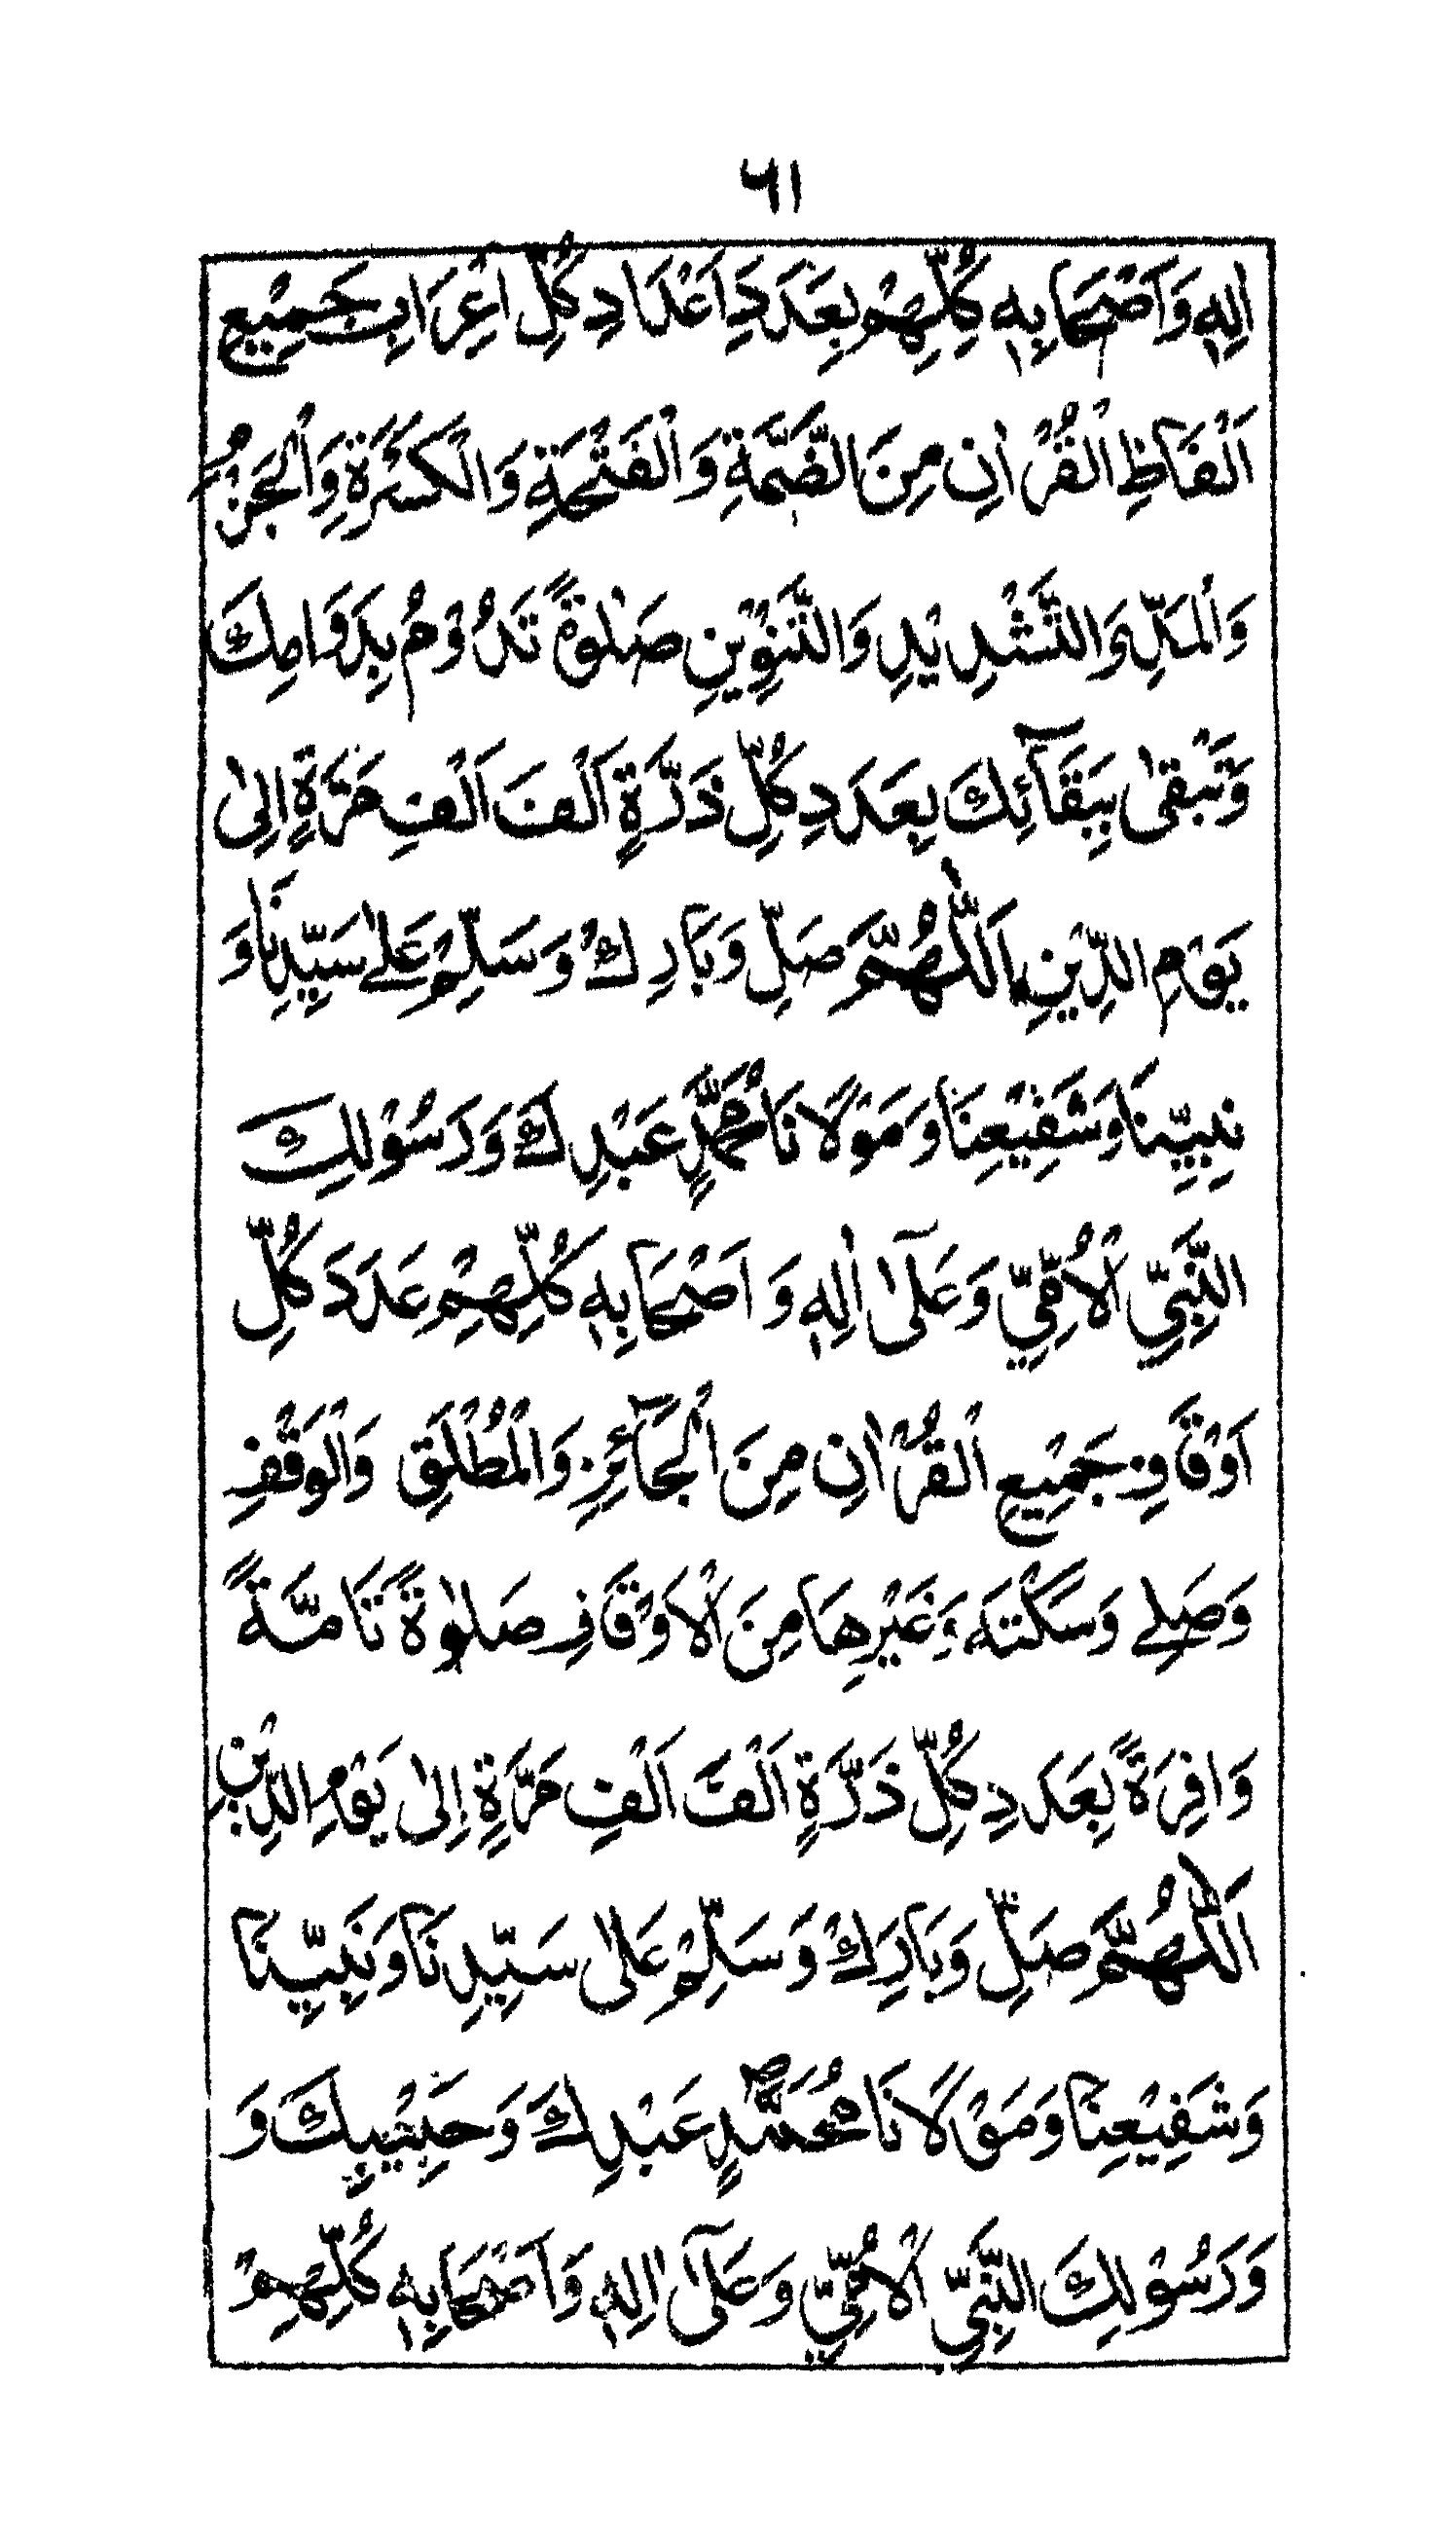 ٦١
اٰلِهٖ وَاَصْحَابِهٖ كُلِّهِمْ بِعَدَدِ اَعْدَادِ كُلِّ اِعْرَابِ جَمِيْعِ
اَلْفَاظِ الْقُرْاٰنِ مِنَ الضَّمَّةِ وَالْفَتْحَةِ وَالْكَسْرَةِ وَالْجَزْمِ
وَالْمَدِّ وَالتَّشْدِيْدِ وَالتَّنْوِيْنِ صَلٰوةً تَدُوْمُ بِدَوَامِكَ
وَتَبْقٰى بِبَقَآئِكَ بِعَدَدِ كُلِّ ذَرَّةٍ اَلْفَ اَلْفِ مَرَّةٍ اِلٰى
يَوْمِ الدِّيْنِ اَللّٰهُمَّ صَلِّ وَبَارِكْ وَسَلِّمْ عَلٰے سَيِّدِنَا وَ
نَبِيِّنَا وَشَفِيْعِنَا وَمَوْلَانَا مُحَمَّدٍ عَبْدِكَ وَرَسُوْلِكَ
النَّبِيِّ الْاُمِّيِّ وَعَلٰٓى اٰلِهٖ وَ اَصْحَابِهٖ كُلِّهِمْ عَدَدَ كُلِّ
اَوْقَافِ جَمِيْعِ الْقُرْاٰنِ مِنَ الْجَآئِزِ وَالْمُطْلَقِ وَالْوَقْفِ
وَصَلِے وَسَكْتَه وَغَيْرِهَا مِنَ الْاَوْقَافِ صَلٰوةً تَامَّةً
وَافِرَةً بِعَدَدِ كُلِّ ذَرَّةٍ اَلْفَ اَلْفِ مَرَّةٍ اِلٰى يَوْمِ الدِّيْنِ
اَللّٰهُمَّ صَلِّ وَبَارِكْ وَسَلِّمْ عَلٰى سَيِّدِنَا وَنَبِيِّنَا
وَشَفِيْعِنَا وَمَوْلَانَا مُحَمَّدٍ عَبْدِكَ وَحَبِيْبِكَ وَ
وَرَسُوْلِكَ النَّبِيِّ الْاُمِّيِّ وَعَلٰٓى اٰلِهٖ وَاَصْحَابِهٖ كُلِّهِمْ